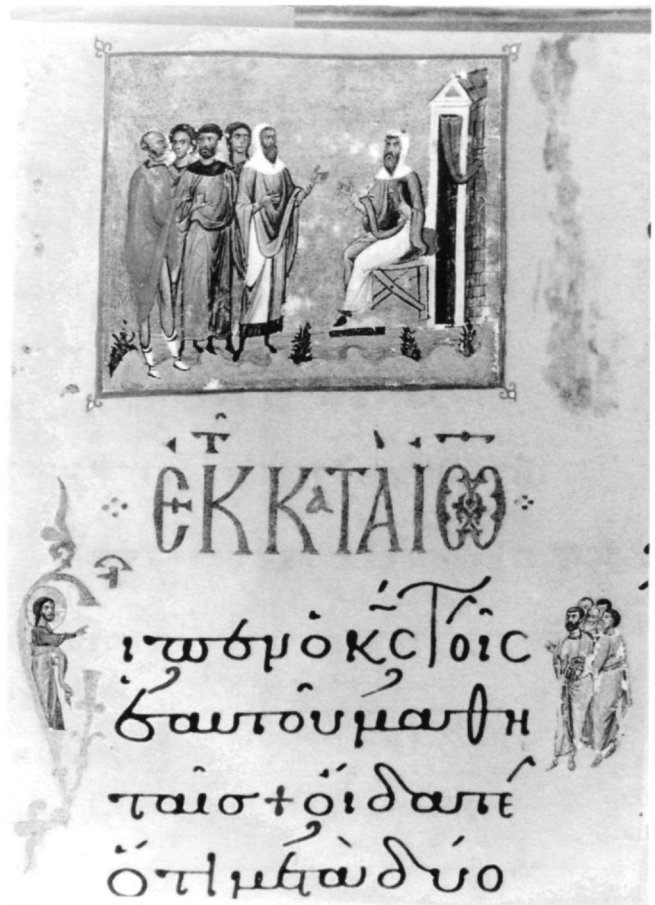 ΕΚ ΚαΤΑ ΙΩ
Ειπεν ὁ κ̅ς̅ τοῖς
ἑαυτοῦ μαθη
ταῖς + οἴδατε
ὅτι μετὰ δύο